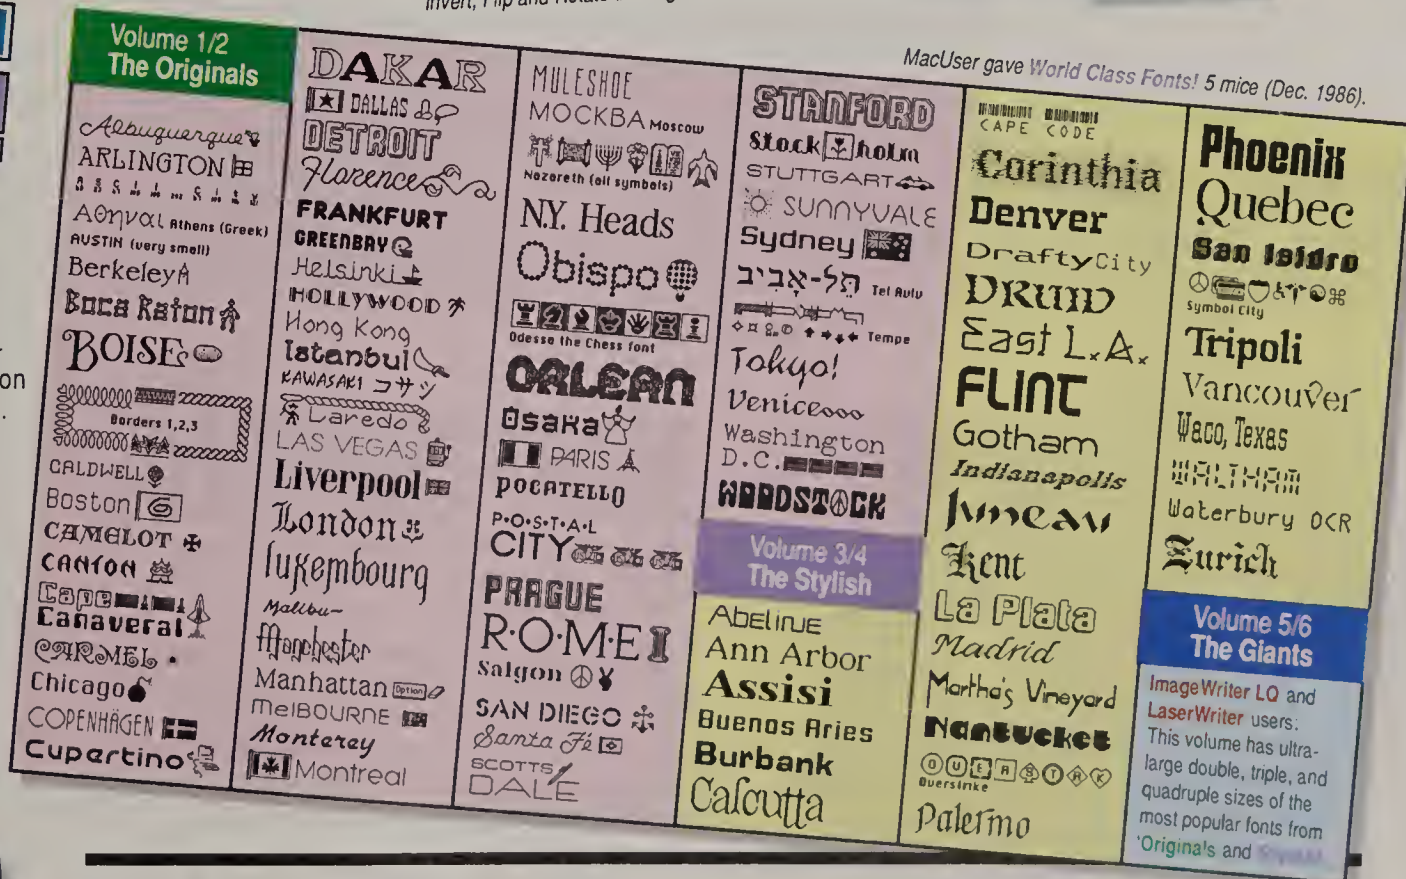 Invert, Flip and Rotate
MacUser gave World Class Fonts! 5 mice (Dec. 1986).
on
Volume 1/2
The Originals
Albuquerque
ARLINGTON
Αθηναι Athens (Greek)
AUSTIN (very small)
Berkeley
Boca Raton
BOISE
Borders 1,2,3
CALDWELL
Boston
CAMELOT
CANTON
Cape
Canaveral
CARMEL
Chicago
COPENHÄGEN
Cupertino
DAKAR
DALLAS
DETROIT
Florence
FRANKFURT
GREENBAY
Helsinki
HOLLYWOOD
Hong Kong
Istanbul
KAWASAKI コサツ
Laredo
LAS VEGAS
Liverpool
London
luxembourg
Malibu
Manchester
Manhattan Option
MELBOURNE
Monterey
Montreal
MULESHOE
MOCKBA Moscow
Nazareth (all symbols)
N.Y. Heads
Obispo
Odessa the Chess font
ORLEAN
Osaka
PARIS
POCATELLO
P·O·S·T·A·L
CITY
PRAGUE
R·O·M·E
Saigon
SAN DIEGO
Santa Fé
SCOTTS
DALE
STANFORD
Stockholm
STUTTGART
SUNNYVALE
Sydney
תֵל-אָבִיב Tel Aviv
Tempe
Tokyo!
Venice
Washington
D.C.
WOODSTOCK
Volume 3/4
The Stylish
Abeline
Ann Arbor
Assisi
Buenos Aries
Burbank
Calcutta
CAPE CODE
Corinthia
Denver
DraftyCity
DRUID
East L.A.
FLINT
Gotham
Indianapolis
Juneau
Kent
La Plata
Madrid
Martha's Vineyard
Nantucket
OVERSTRK
Overstrike
Palermo
Phoenix
Quebec
San Isidro
Symbol City
Tripoli
Vancouver
Waco, Texas
WALTHAM
Waterbury OCR
Zurich
Volume 5/6
The Giants
ImageWriter LQ and
LaserWriter users:
This volume has ultra-
large double, triple, and
quadruple sizes of the
most popular fonts from
'Originals and